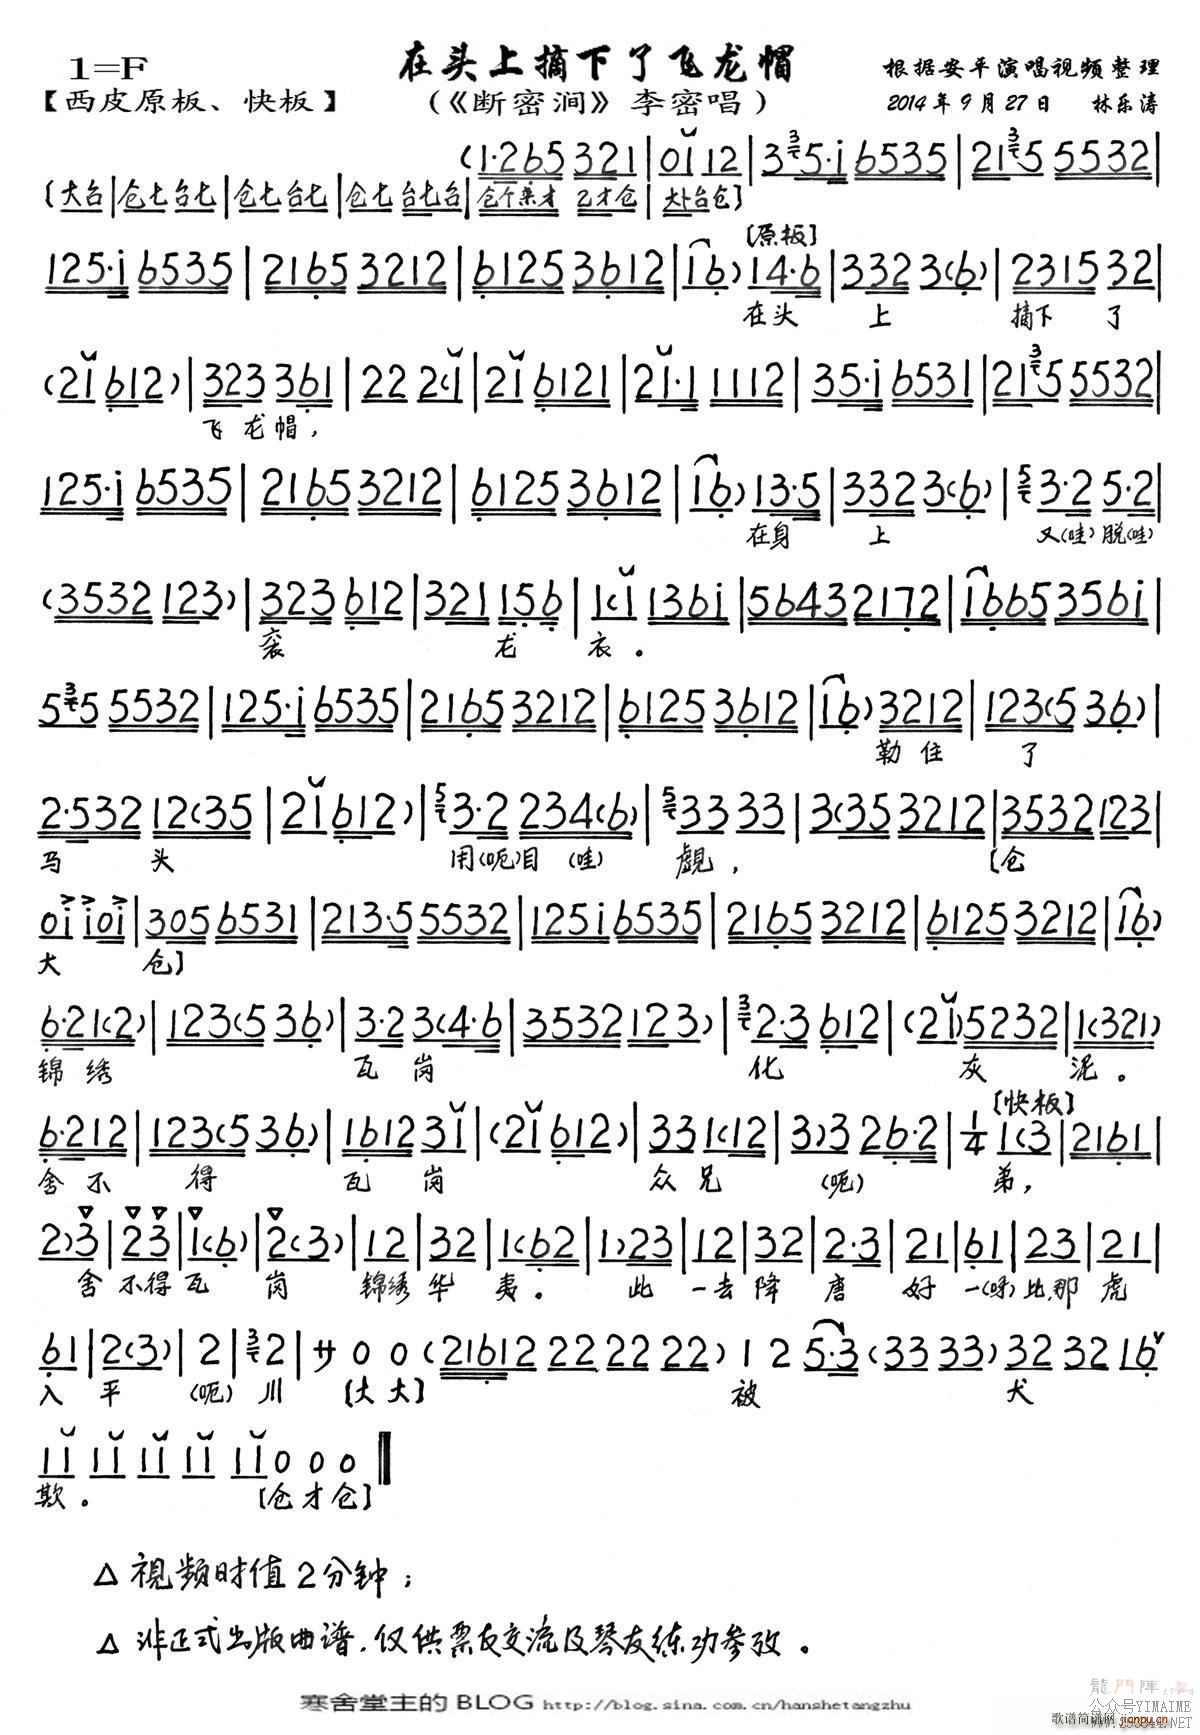 在头上摘下了飞龙帽
1=F
【西皮原板、快板】
(《断密涧》李密唱)
根据安平演唱视频整理
2014年9月27日 林乐涛
(1·265 321|0i 12|35·i 6535|215 5532|
[大台|仓七台七|仓七台七|仓七台七台|仓个来才 乙才仓|大卜台仓]
[原板]
125·i 6535|2165 3212|6125 3612|1 6) 14·6|332 3(6)|2315 32|
在头 上 摘下 了
(2i 612)|323 361|22 2(i|2i 6121|2i·1 1112|35·i 6531|215 5532|
飞龙帽,
125·i 6535|2165 3212|6125 3612|1 6) 13·5|332 3(6)|3·2 5·2|
在身 上 又(哇)脱(哇)
(3532 123)|323 612|321 156|1(i 136i|5643 2172|1665 356i|
衮 龙 衣。
55 5532|125·i 6535|2165 3212|6125 3612|1 6) 3212|123(5 36)|
勒住 了
2·532 12(35|2i 612)|3·2 234(6)|33 33|3(35 3212|3532 123|
马 头 用(呃)目(哇) 觑, [仓
0i i0i|305 6531|213·5 5532|125i 6535|2165 3212|6125 3212|1 6)
大 仓]
6·21(2)|123(5 36)|3·2 3(4·6|3532 123)|2·3 612|(2i)5232|1(321)
锦绣 瓦岗 化 灰 泥。
[快板]
6·212|123(5 36)|1612 3i|(2i 612)|33 1(12|3)3 26·2|1/4 1(3|2161|
舍不 得 瓦岗 众兄 (呃) 弟,
2)3|23|1(6)|2(3)|12|32|1(62|1)23|12|32|2·3|21|61|23|21|
舍不得瓦 岗 锦绣华 夷。 此 一去降 唐 好 一(呀)比,那虎
61|2(3)|2|2|サ 0 0 (21612 22 22 22) 1 2 5·3 (33 33) 32 32 16
入 平 (呃)川 [大大] 被 犬
1i 1i 1i 1i 1i 0 0 0
欺。 [仓才仓]
△ 视频时值2分钟;
△ 非正式出版曲谱,仅供票友交流及琴友练功参考。
寒舍堂主的BLOG http://blog.sina.com.cn/hanshetangzhu
龍門陣
公众号YIMAIME
歌谱简谱网 jianpu.cn